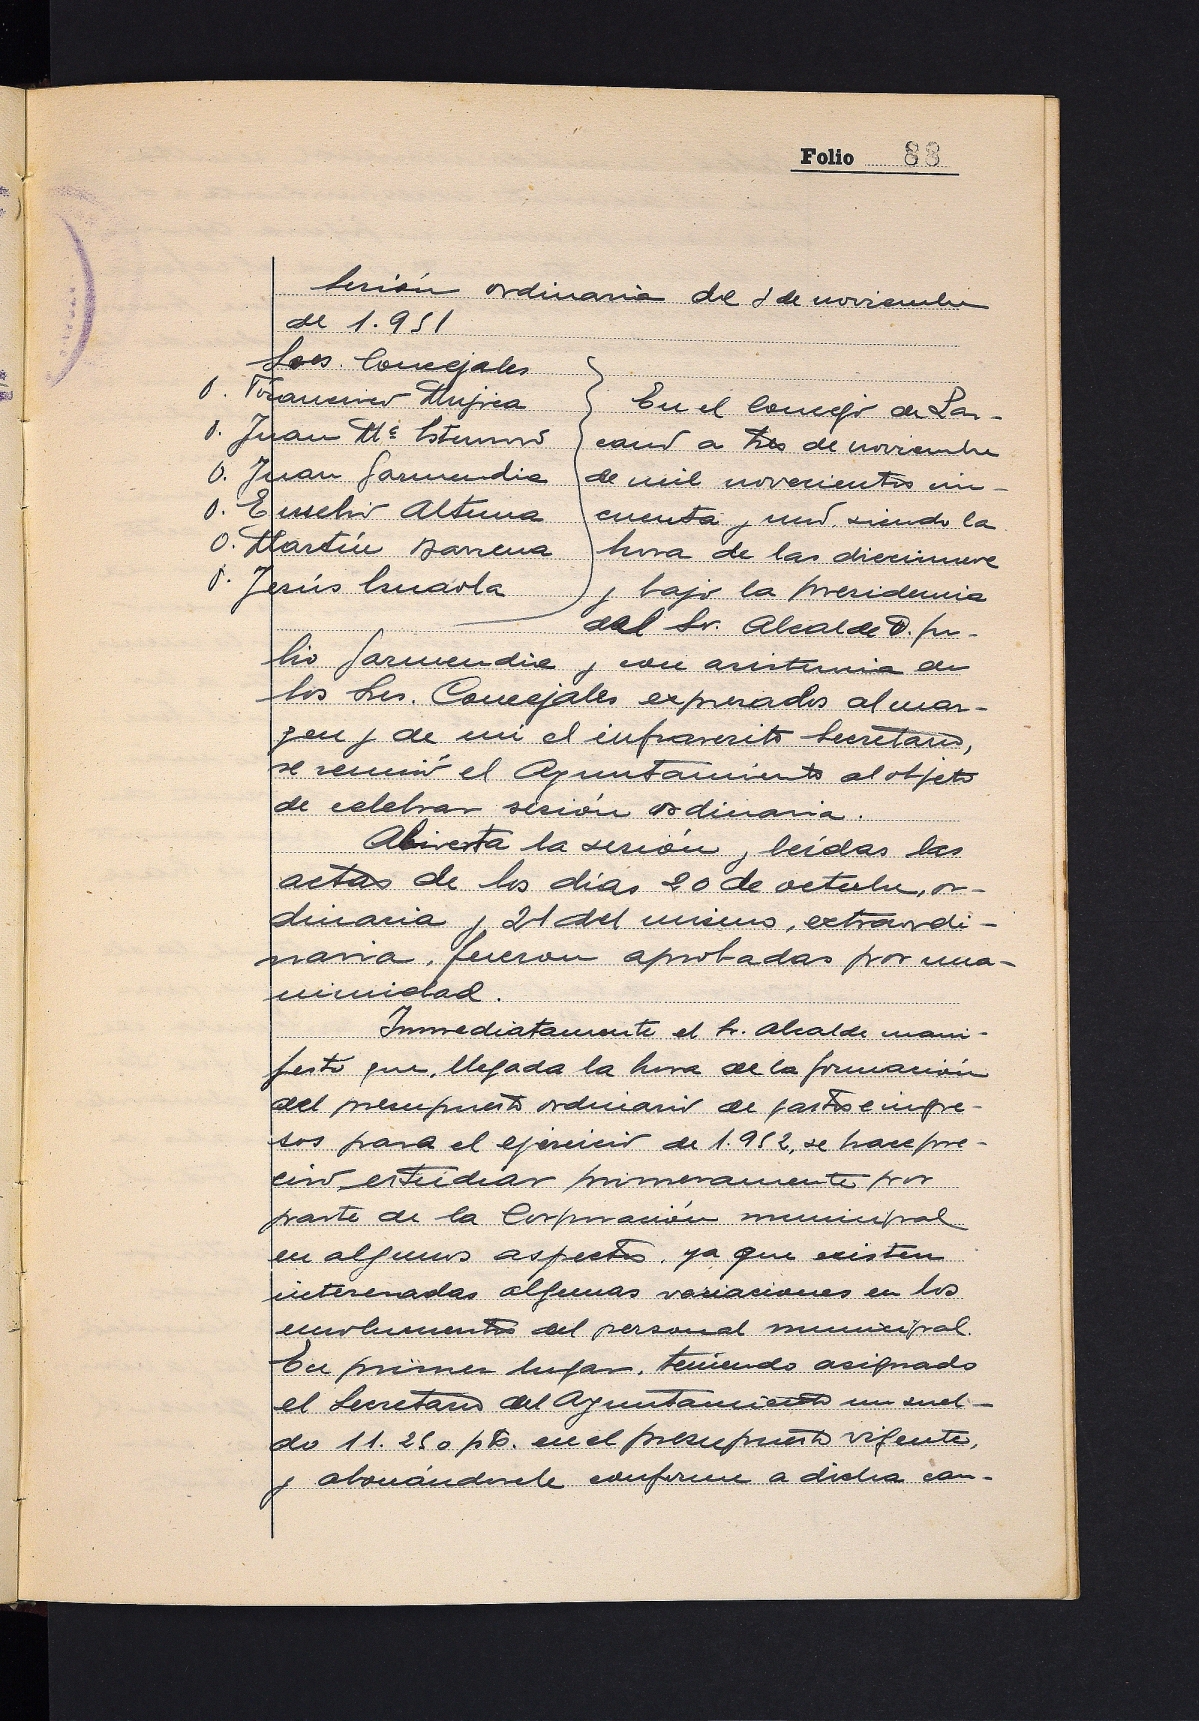 Folio 88
Sesión ordinaria del 3 de noviembre
de 1.951
Sres. Concejales
D. Francisco Mujica
D. Juan Mª
D. Juan Garmendia
D. Eusebio Altuna
D. Martín Barrena
D. Jesús
En el Concejo de Laz-
cano a tres de noviembre
de mil novecientos cin-
cuenta y uno. siendo la
hora de las diecinueve
y bajo la presidencia
del Sr. Alcalde D. Ju-
lio Garmendia y con asistencia de
los Sres. Concejales expresados al mar-
gen y de mi el infrascrito Secretario,
se reunió el Ayuntamiento al objeto
de celebrar sesión ordinaria.
Abierta la sesión y leídas las
actas de los días 20 de octubre, or-
dinaria y 21 del mismo, extraordi-
naria, fueron aprobadas por una-
nimidad.
Inmediatamente el Sr. Alcalde mani-
festó que, llegada la hora de la formación
del presupuesto ordinario de gastos e ingre-
sos para el ejercicio de 1.952, se hace pre-
ciso estudiar primeramente por
parte de la Corporación municipal
en algunos aspectos, ya que existen
interesadas algunas variaciones en los
emolumentos del personal municipal.
En primer lugar, teniendo asignado
el Secretario del Ayuntamiento un suel-
do 11.250 pts. en el presupuesto vigente,
y abonándosele conforme a dicha can-